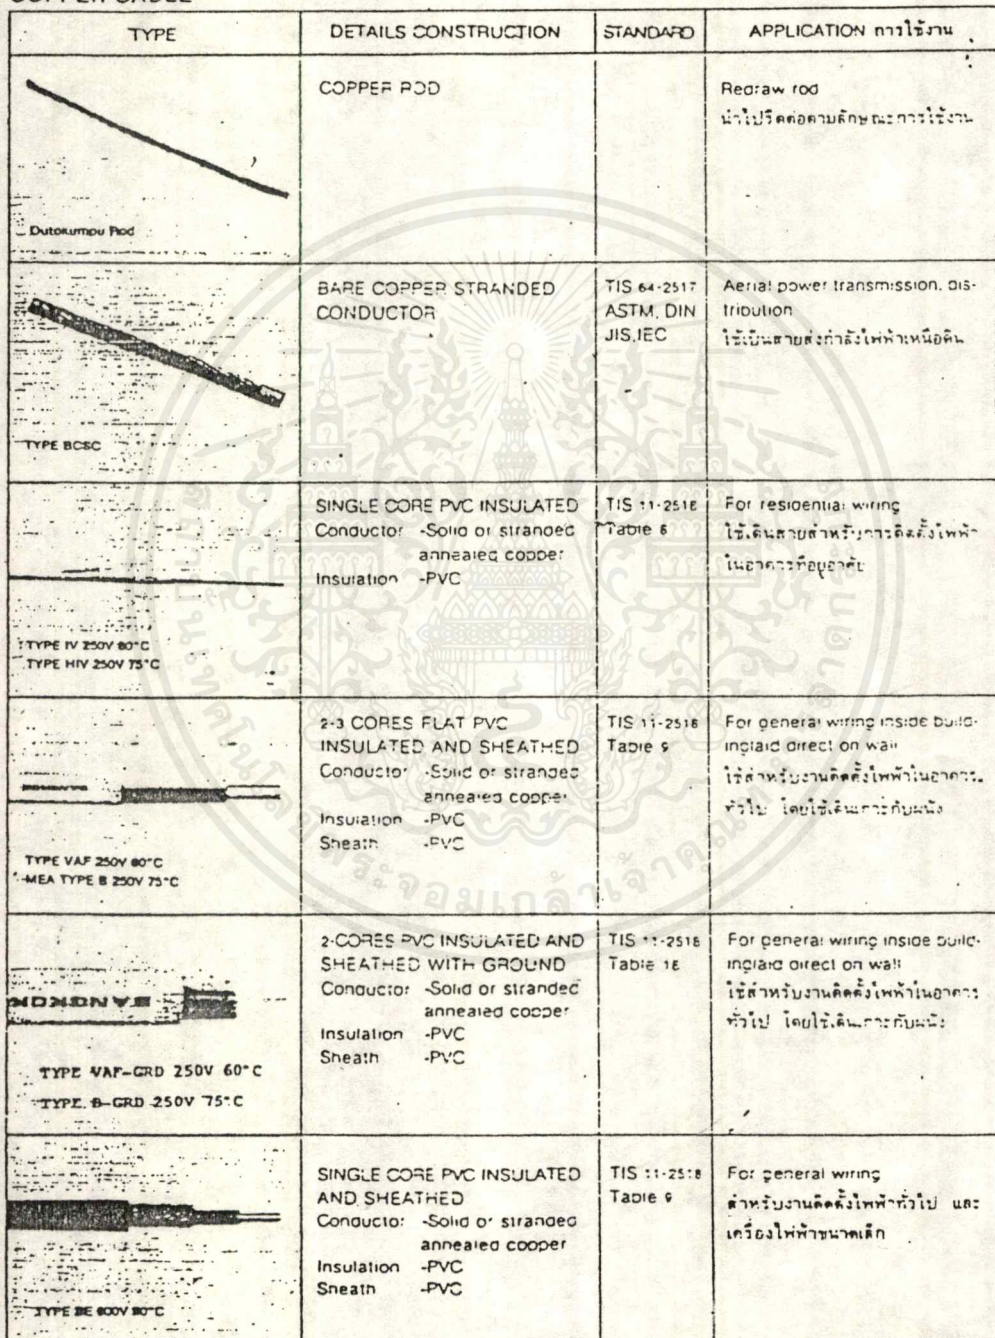 COPPER CABLE
TYPE
DETAILS CONSTRUCTION
STANDARD
APPLICATION การใช้งาน
Outokumpu Rod
COPPER ROD
Redraw rod
นำไปรีดต่อตามลักษณะการใช้งาน
TYPE BCSC
BARE COPPER STRANDED
CONDUCTOR
TIS 64-2517
ASTM, DIN
JIS,IEC
Aerial power transmission, dis-
tribution
ใช้เป็นสายส่งกำลังไฟฟ้าเหนือดิน
TYPE IV 250V 60°C
TYPE HIV 250V 75°C
SINGLE CORE PVC INSULATED
Conductor -Solid or stranded
annealed copper
Insulation -PVC
TIS 11-2518
Table 6
For residential wiring
ใช้เดินสายสำหรับการติดตั้งไฟฟ้า
ในอาคารที่อยู่อาศัย
TYPE VAF 250V 60°C
MEA TYPE B 250V 75°C
2-3 CORES FLAT PVC
INSULATED AND SHEATHED
Conductor -Solid or stranded
annealed copper
Insulation -PVC
Sheath -PVC
TIS 11-2518
Table 9
For general wiring inside build-
inglaid direct on wall
ใช้สำหรับงานติดตั้งไฟฟ้าในอาคาร
ทั่วไป โดยใช้เดินเกาะกับผนัง
BANGKOK
TYPE VAF-GRD 250V 60°C
TYPE B-GRD 250V 75°C
2-CORES PVC INSULATED AND
SHEATHED WITH GROUND
Conductor -Solid or stranded
annealed copper
Insulation -PVC
Sheath -PVC
TIS 11-2518
Table 16
For general wiring inside build-
inglaid direct on wall
ใช้สำหรับงานติดตั้งไฟฟ้าในอาคาร
ทั่วไป โดยใช้เดินเกาะกับผนัง
TYPE BE 600V 80°C
SINGLE CORE PVC INSULATED
AND SHEATHED
Conductor -Solid or stranded
annealed copper
Insulation -PVC
Sheath -PVC
TIS 11-2518
Table 9
For general wiring
สำหรับงานติดตั้งไฟฟ้าทั่วไป และ
เครื่องไฟฟ้าขนาดเล็ก